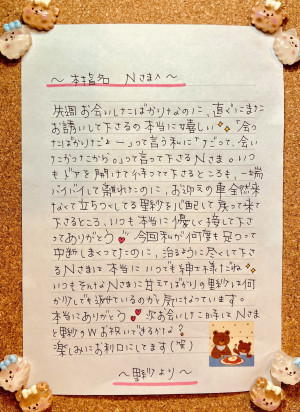 〜 本指名 Nさまへ 〜
先週お会いしたばかりなのに、直ぐにまた
お誘いして下さるの本当に嬉しい✨「会っ
たばかりだよー」って言う私に「だって、会い
たかったから。」って言って下さるNさま。いつ
もドアを開けて待ってて下さるところも、一端
バイバイして離れたのに、お迎えの車全然来
なくて立ちつくしてる野紗を心配して戻って来て
下さるところ、いつも本当に優しく接して下さ
ってありがとう💕 今回私が何度も足つって
中断しまくってたのに、治るように尽くして下さ
るNさまは本当にいつでも紳士ですね。
いつもそんなNさまに甘えてばかりの野紗は何
か少しでも返せているのか気になっています。
本当にありがとう💕 次お会いした時はNさま
と野紗のWお祝いできるかな?
楽しみにお利口にしてます(笑)
〜野紗より〜